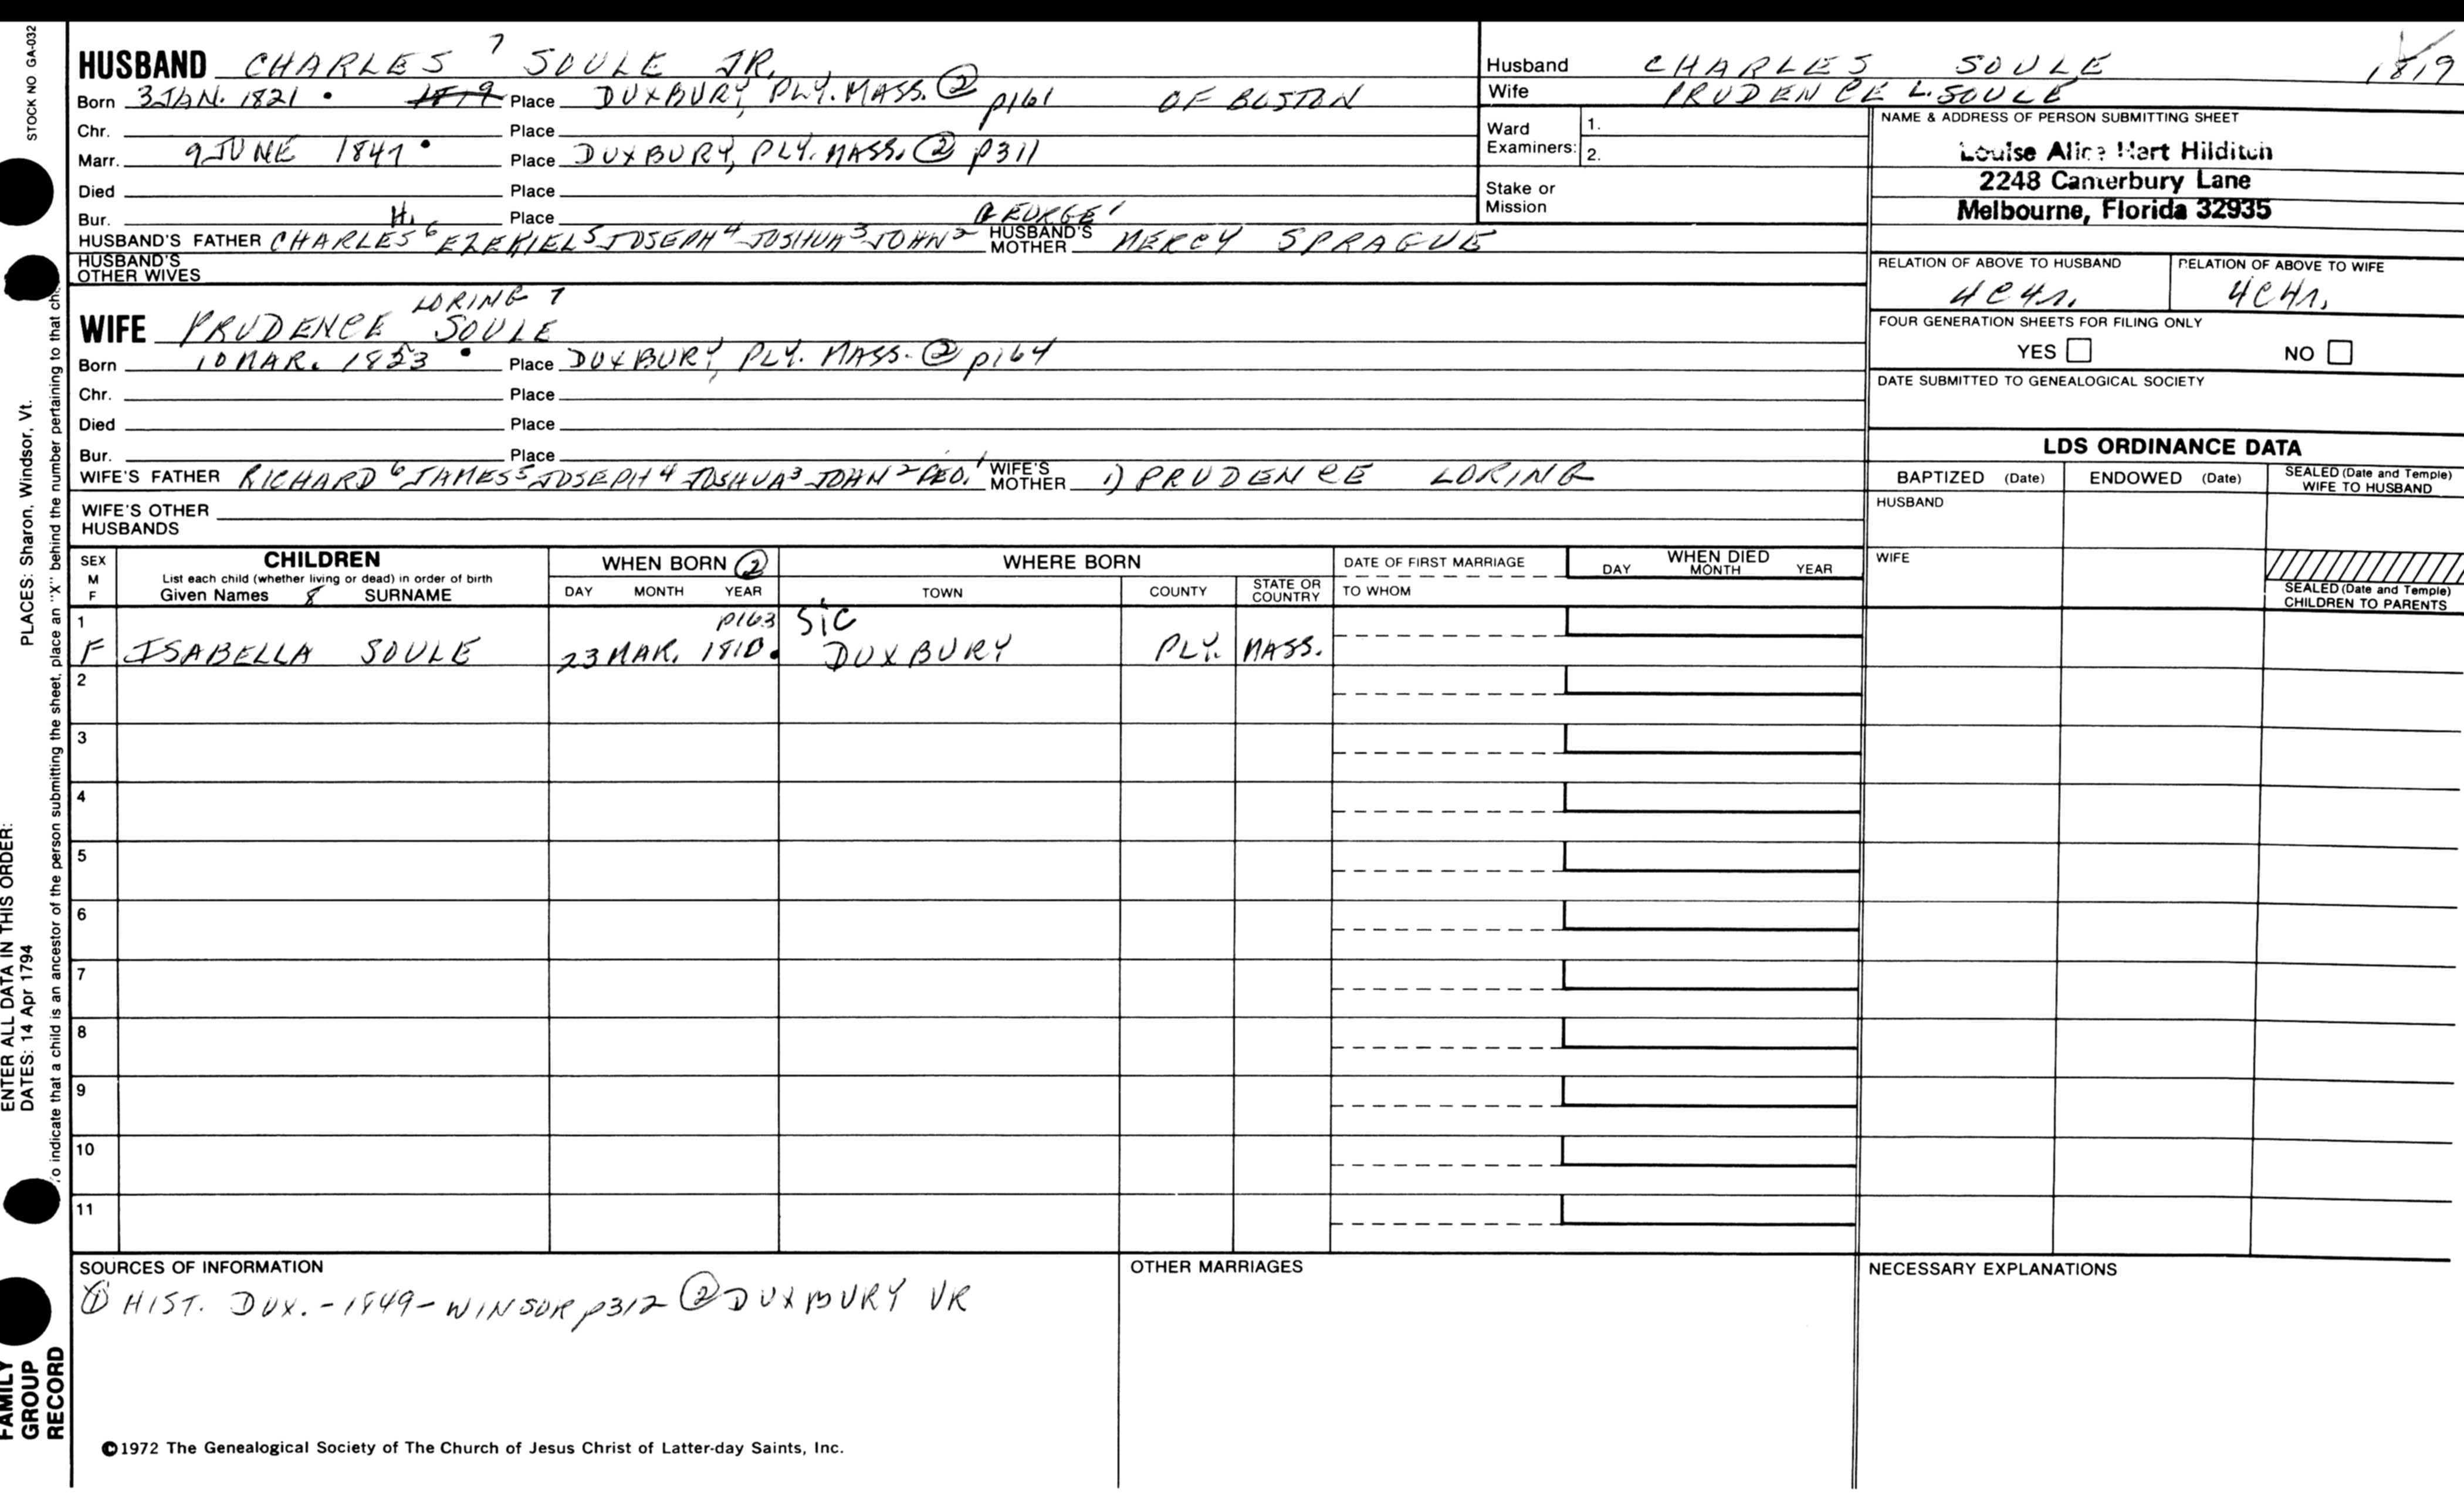 STOCK NO GA-032
HUSBAND CHARLES 7 SOULE JR.
Born 3 JAN. 1821 • 1819 Place DUXBURY, PLY. MASS. ② p161 OF BOSTON
Chr. Place
Marr. 9 JUNE 1847 • Place DUXBURY, PLY. MASS. ② p311
Died Place
Bur. Place
HUSBAND'S FATHER CHARLES H. 6 EZEKIEL 5 JOSEPH 4 JOSHUA 3 JOHN 2 GEORGE 1 HUSBAND'S MOTHER MERCY SPRAGUE
HUSBAND'S OTHER WIVES
WIFE PRUDENCE LORING 7 SOULE
Born 10 MAR. 1823 • Place DUXBURY, PLY. MASS. ② p164
Chr. Place
Died Place
Bur. Place
WIFE'S FATHER RICHARD 6 JAMES 5 JOSEPH 4 JOSHUA 3 JOHN 2 GEO. 1 WIFE'S MOTHER 1) PRUDENCE LORING
WIFE'S OTHER HUSBANDS
Husband CHARLES SOULE 1819
Wife PRUDENCE L. SOULE
Ward Examiners: 1.
2.
Stake or Mission
NAME & ADDRESS OF PERSON SUBMITTING SHEET
Louise Alice Hart Hilditch
2248 Canterbury Lane
Melbourne, Florida 32935
RELATION OF ABOVE TO HUSBAND RELATION OF ABOVE TO WIFE
4C4r. 4C4r.
FOUR GENERATION SHEETS FOR FILING ONLY
YES NO
DATE SUBMITTED TO GENEALOGICAL SOCIETY
LDS ORDINANCE DATA
BAPTIZED (Date) ENDOWED (Date) SEALED (Date and Temple) WIFE TO HUSBAND
HUSBAND
WIFE
SEALED (Date and Temple) CHILDREN TO PARENTS
SEX M F CHILDREN WHEN BORN ② WHERE BORN DATE OF FIRST MARRIAGE WHEN DIED
List each child (whether living or dead) in order of birth
Given Names 8 SURNAME DAY MONTH YEAR TOWN COUNTY STATE OR COUNTRY TO WHOM DAY MONTH YEAR
1 p163 SIC
F ISABELLA SOULE 23 MAR. 1810. DUXBURY PLY. MASS.
2
3
4
5
6
7
8
9
10
11
SOURCES OF INFORMATION
① HIST. DUX. - 1849 - WINSOR p312 ② DUXBURY VR
OTHER MARRIAGES
NECESSARY EXPLANATIONS
©1972 The Genealogical Society of The Church of Jesus Christ of Latter-day Saints, Inc.
FAMILY GROUP RECORD
ENTER ALL DATA IN THIS ORDER:
DATES: 14 Apr 1794
PLACES: Sharon, Windsor, Vt.
To indicate that a child is an ancestor of the person submitting the sheet, place an "X" behind the number pertaining to that